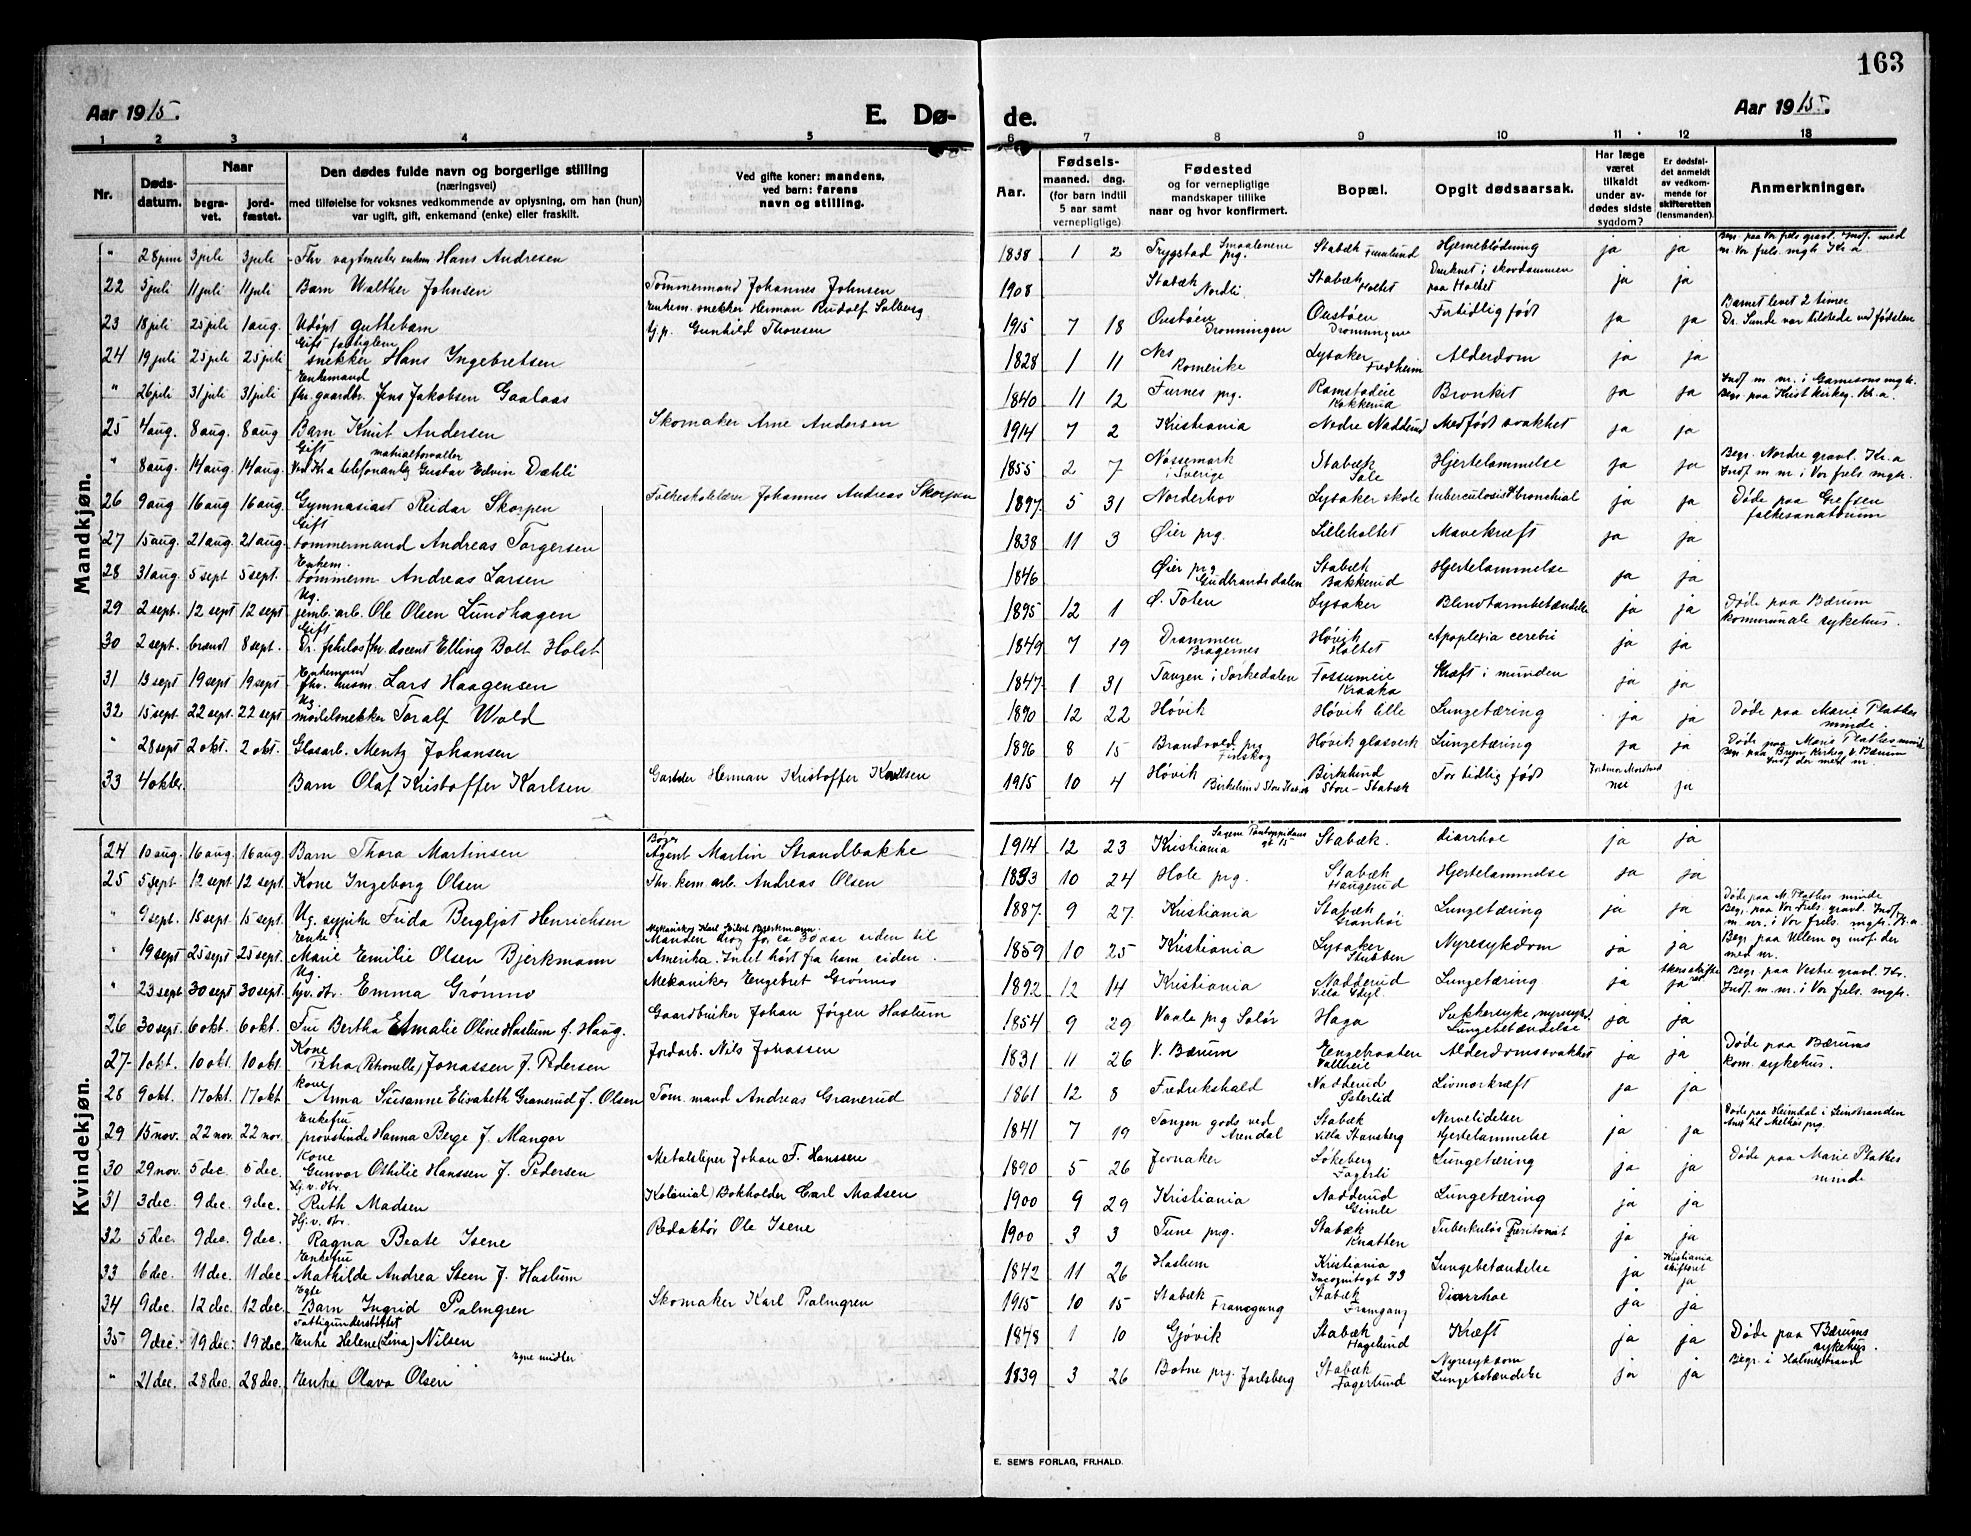 163
Aar 1915.
E. Dø-
de.
Aar 1915.
1 2 3 4 5 6 7 8 9 10 11 12 13
Nr.
Døds-
datum.
Naar
begra-
vet.
jord-
fæstet.
Den dødes fulde navn og borgerlige stilling
(næringsvei)
med tilføielse for voksnes vedkommende av oplysning, om han (hun)
var ugift, gift, enkemand (enke) eller fraskilt.
Ved gifte koner: mandens,
ved barn: farens
navn og stilling.
Aar.
Fødsels-
maaned. dag.
(for barn indtil
5 aar samt
vernepligtige.)
Fødested
og for vernepligtige
mandskaper tillike
naar og hvor konfirmert.
Bopæl.
Opgit dødsaarsak.
Har læge
været
tilkaldt
under av-
dødes sidste
sygdom?
Er dødsfal-
det anmeldt
av vedkom-
mende for
skifteretten
(lensmanden).
Anmerkninger.
Mandkjøn.
" 28 juni 3 juli 3 juli Fhv. vagtmester enkem Hans Andresen 1838 1 2 Trygstad prg. Smaalenene Stabæk Furulund Hjerneblødning ja ja Begr. paa Vor frels gravl. Indf. med nr. Vor frels. mgh. Kr.a.
22 5 juli 11 juli 11 juli Barn Walther Johnsen Tømmermand Johannes Johnsen 1908 Stabæk Nordli Stabæk Holtet Druknet i skordammen paa Holtet ja ja
23 18 juli 25 juli 1 aug. Udøpt guttebarn Enkem. snekker Herman Rudolf Solberg Gunhild Thoresen 1915 7 18 Oustøen Dronningen Oustøen Dronningen Fortidlig født ja ja Barnet levet 2 timer Dr. Sunde var tilstede ved fødslen
24 19 juli 25 juli 25 juli Gift snekker Hans Ingebretsen 1828 1 11 Nes Romerike Lysaker Fredheim Alderdom ja ja
" 26 juli 31 juli 31 juli Enkemand fhv. gaardbr. Jens Jakobsen Gaalaas 1840 11 12 Furnes prg. Ramstadeie Bronkit ja ja Indf m nr. i Garnisons mgh. Begr. paa Krist kirkeg. Kr.a.
25 4 aug. 8 aug. 8 aug Barn Knut Andersen Skomaker Arne Andersen 1914 7 2 Kristiania Nedre Nadderud Medfødt svakhet ja ja
" 8 aug. 14 aug. 14 aug. Gift materialforvalter ved Kr.a telefonanlæg Gustav Edvin Dæhli 1855 2 7 Nøssemark i Sverige Stabæk Sole Hjertelammelse ja ja Begr. Nordre gravl. Kr.a Indf m nr. i Vor frels. mgh.
26 9 aug 16 aug 16 aug. Gymnasiast Reidar Skorpen Folkeskolelærer Johannes Andreas Skorpen 1897 5 31 Norderhov Lysaker skole tuberculosis bronchial ja ja Døde paa Grefsen folkesanatorium
27 15 aug. 21 aug. 21 aug. Gift tømmermand Andreas Torgersen 1838 11 3 Øier prg. Lilleholtet Mavekræft ja ja
28 31 aug. 5 sept 5 sept. Enkem. tømmerm Andreas Larsen 1846 Øier prg Gudbrandsdalen Stabæk Bakkerud Hjertelammelse ja ja
29 2 sept. 12 sept 12 sept Ug. jernb. arb. Ole Olsen Lundhagen 1895 12 1 Ø. Toten Lysaker Blindtarmbetændelse ja ja Døde paa Bærum kommunale sykehus.
30 2 sept. brændt 8 sept. Gift Dr. philos fhv. docent Elling Bolt Holst 1849 7 19 Drammen Bragernes Høvik Holtet Apoplexia cerebri ja ja
31 13 sept 19 sept 19 sept Enkemand fhv. husm. Lars Haagensen 1847 1 31 Tangen i Sørkedalen Fossumeie Kraaka Kræft i munden ja ja
32 15 sept. 22 sept. 22 sept Ug. modelsnekker Toralf Wold 1890 12 22 Høvik Høvik lille Lungetæring ja ja Døde paa Marie Plathes minde.
" 28 sept 2 okt. 2 okt. Glasarb. Mentz Johansen 1896 8 15 Brandvold prg Finskog Høvik glasverk Lungetæring ja ja Døde paa Marie Plathes minde Begr. paa Bryn kirkeg. V. Bærum Indf der med nr.
33 4 okt. Barn Olaf Kristoffer Karlsen Gartner Herman Kristoffer Karlsen 1915 10 4 Høvik Birkelund Store Stabæk Birkelund Store-Stabæk For tidlig født Jordmor nei ja
Kvindekjøn.
24 10 aug. 16 aug. 16 aug. Barn Thora Martinsen Agent Martin Strandbakke 1914 12 23 Kristiania Sagene gt 15 Stabæk. diarrhoe ja ja
25 5 sept 12 sept 12 sept. Kone Ingeborg Olsen Fhv. kem. arb. Andreas Olsen 1833 10 24 Hole prg. Stabæk Haugerud Hjertelammelse ja ja
" 9 sept. 15 sept. 15 sept. Ug. sypike Frida Bergljot Henrichsen 1887 9 27 Kristiania Stabæk Granhöi Lungetæring ja ja Døde paa M. Plathes minde Begr. paa Vor frels gravl. Indf. m. nr. i Vor frels. mgh. Kr.a
" 19 sept 25 sept 25 sept. Enke Marie Emilie Olsen Bjerkmann Mekaniker Karl Bjerkmann. Manden drog for ca 30 aar siden til Amerika. Intet hørt fra ham siden. 1859 10 25 Kristiania Lysaker Stubben Nyresykdom ja ja Begr. paa Ullern og indf. der med nr.
" 23 sept 30 sept 30 sept. Ug. hjv. dtr. Emma Grønmo Mekaniker Engebret Grønmo 1892 12 14 Kristiania Nadderud Villa Idyl. Lungetæring ja ja Begr. paa Vestre gravl. Kr. Indf. m. nr. i Vor frels. mgh.
26 30 sept. 6 okt. 6 okt. Fru Bertha Amalie Oline Haslum f. Haug. Gaardbruker Johan Jørgen Haslum 1854 9 29 Vaale prg Solør Haga Sukkersyke nyresykd. Lungebetændelse ja ja
27 1 okt. 10 okt. 10 okt. Kone Jonassen f. Pedersen Jordarb. Nils Johassen 1831 11 26 V. Bærum Alderdomssvakhet ja ja Døde paa Bærums kom. sykehus.
28 9 okt. 17 okt. 17 okt Kone Anna Susanne Elisabeth Granerud f. Olsen Tøm. mand Andreas Granerud 1861 12 8 Fredrikshald Nadderud Østerlid Livmorkræft ja ja
29 15 nov. 22 nov. 22 nov. Enkefru provstinde Hanna Berge f. Mangor 1841 7 19 Tangen gods ved Arendal Stabæk Villa Stansberg Nervelidelse Hjertelammelse ja ja Døde paa Heimdal i Leinstranden Anm til Melhus prg.
30 29 nov. 5 dec. 5 dec. Kone Gunvor Othilie Hanssen f. Pedersen Metalsliper Johan F. Hanssen 1890 5 26 Jevnaker Løkeberg Fagerli Lungetæring ja ja Døde paa Marie Plathes minde
31 3 dec. 9 dec. 9 dec. Hj. v. dtr. Ruth Madsen (Kolonial) Bokholder Carl Madsen 1900 9 29 Kristiania Nadderud Gimle Lungetæring ja ja
32 5 dec. 9 dec. 9 dec. Hj. v. dtr. Ragna Beate Isene Redaktør Ole Isene 1900 3 3 Tune prg. Stabæk Knatten Tuberkuløs Peritonit ja ja
33 6 dec. 11 dec. 11 dec Enkefru Mathilde Andrea Steen f. Haslum 1842 11 26 Haslum Kristiania Incognitogt 33 Lungebetændelse ja Kristiania skifteret ja
34 9 dec. 12 dec. 12 dec. Egte Barn Ingrid Palmgren Skomaker Karl Palmgren 1915 10 15 Stabæk Framgang Stabæk Framgang Diarrhoe ja ja
35 9 dec. 19 dec. 19 dec. Fattigunderstøttet Enke Helene (Lina) Nilsen 1848 1 10 Gjøvik Stabæk Hagelund Kræft ja ja Døde paa Bærums sykehus.
" 21 dec. 28 dec. 28 dec. Egne midler Enke Olava Olsen 1839 3 26 Botne prg. Jarlsberg Stabæk Fagerlund Nyresykdom Lungebetændelse ja ja Begr. i Holmestrand
E. SEM'S FORLAG, FR.HALD.